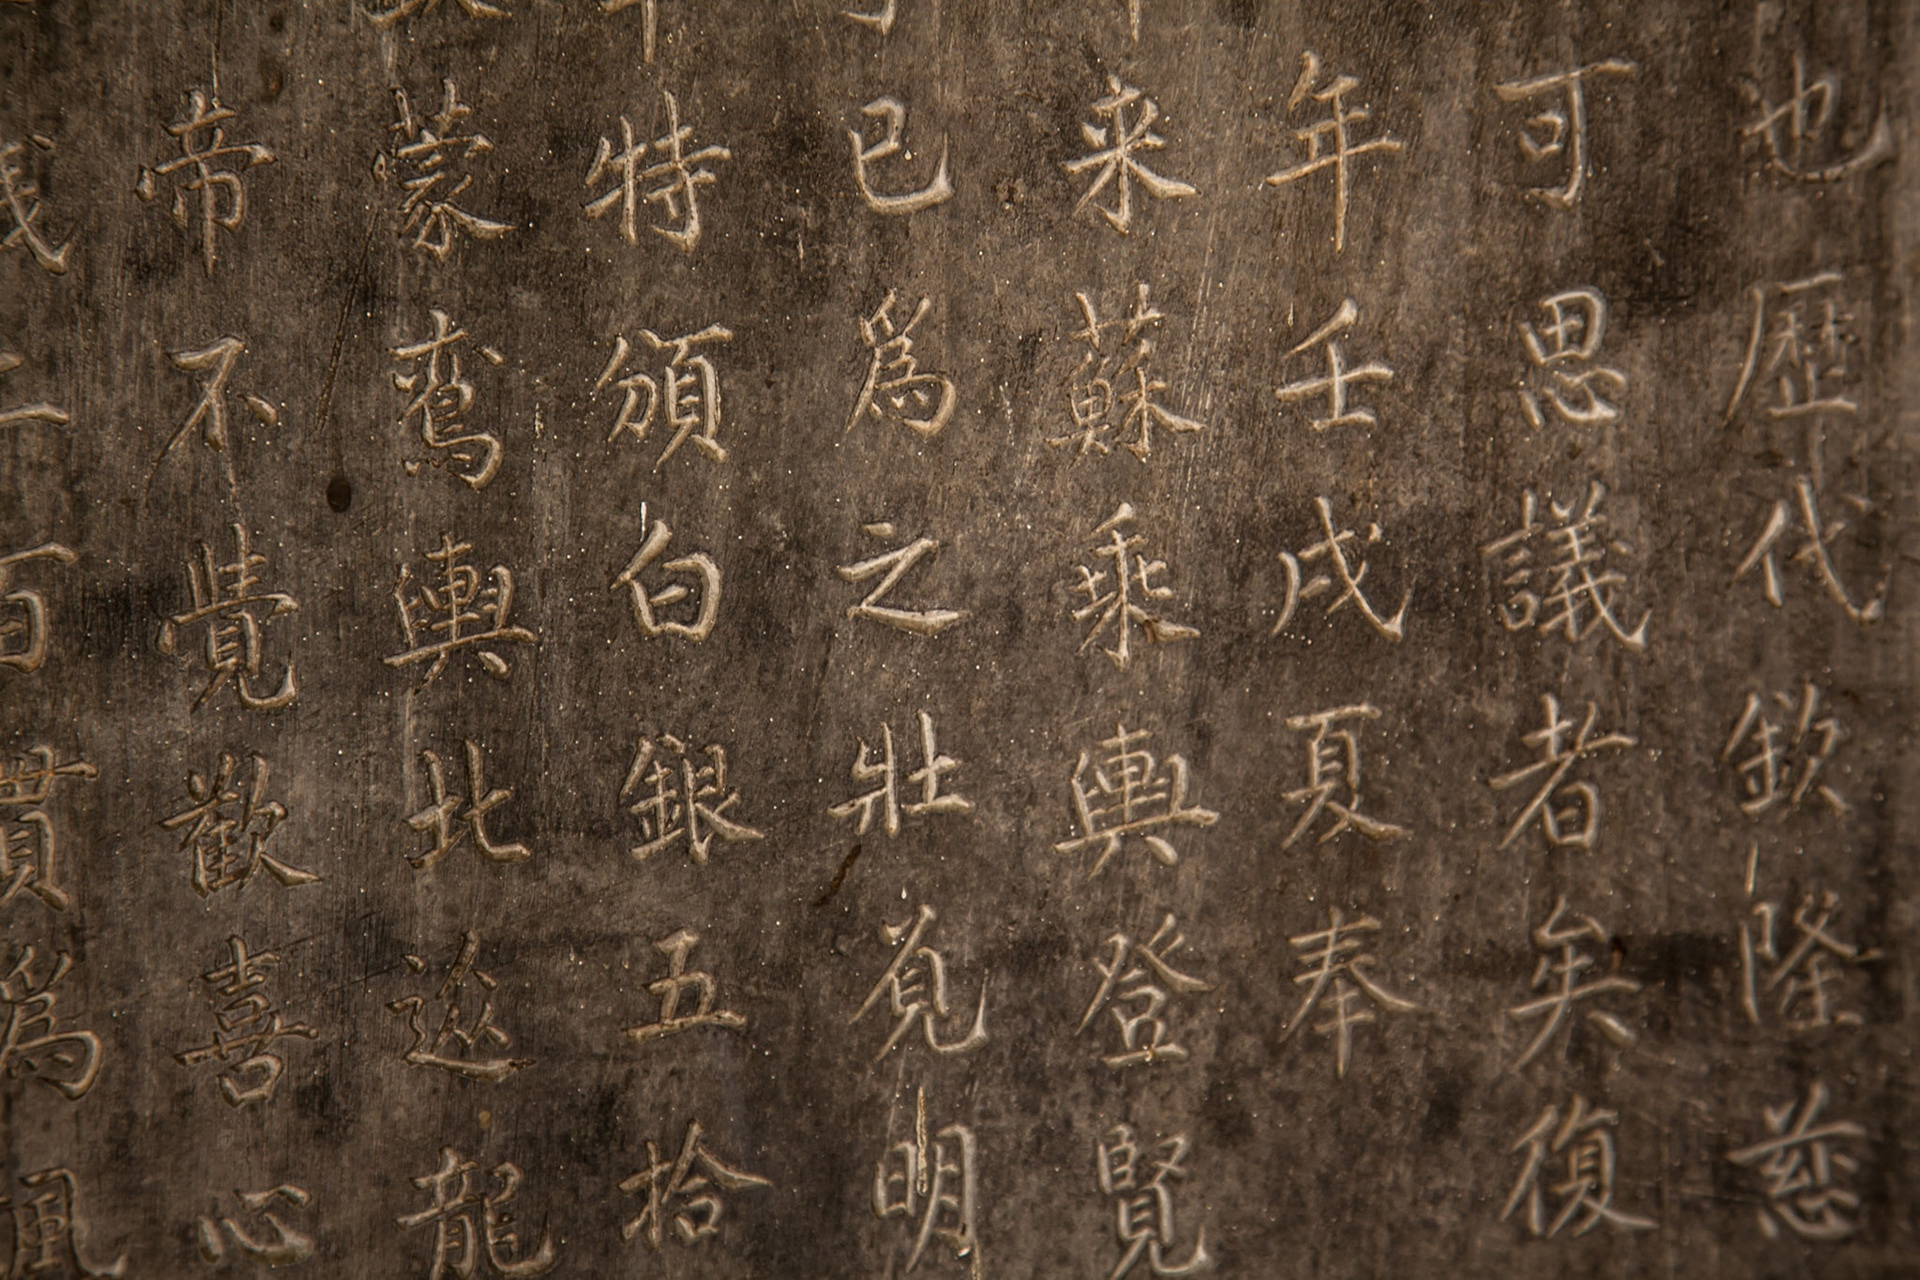 也歴代欽隆慈
可思議者矣復
年壬戌夏奉
来蘇乘輿登賢
已爲之壯覓明
特頒白銀五拾
蒙鵉輿北巡龍
帝不覺歡喜心
百貫爲